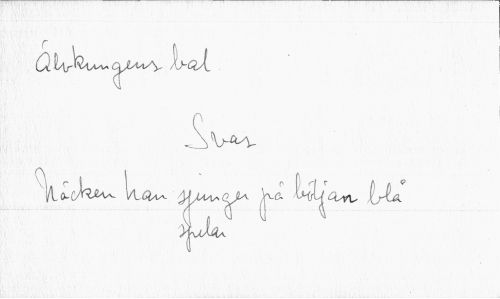 Älvkungens bal
Svar
Näcken han sjunger på böljan blå
spelar